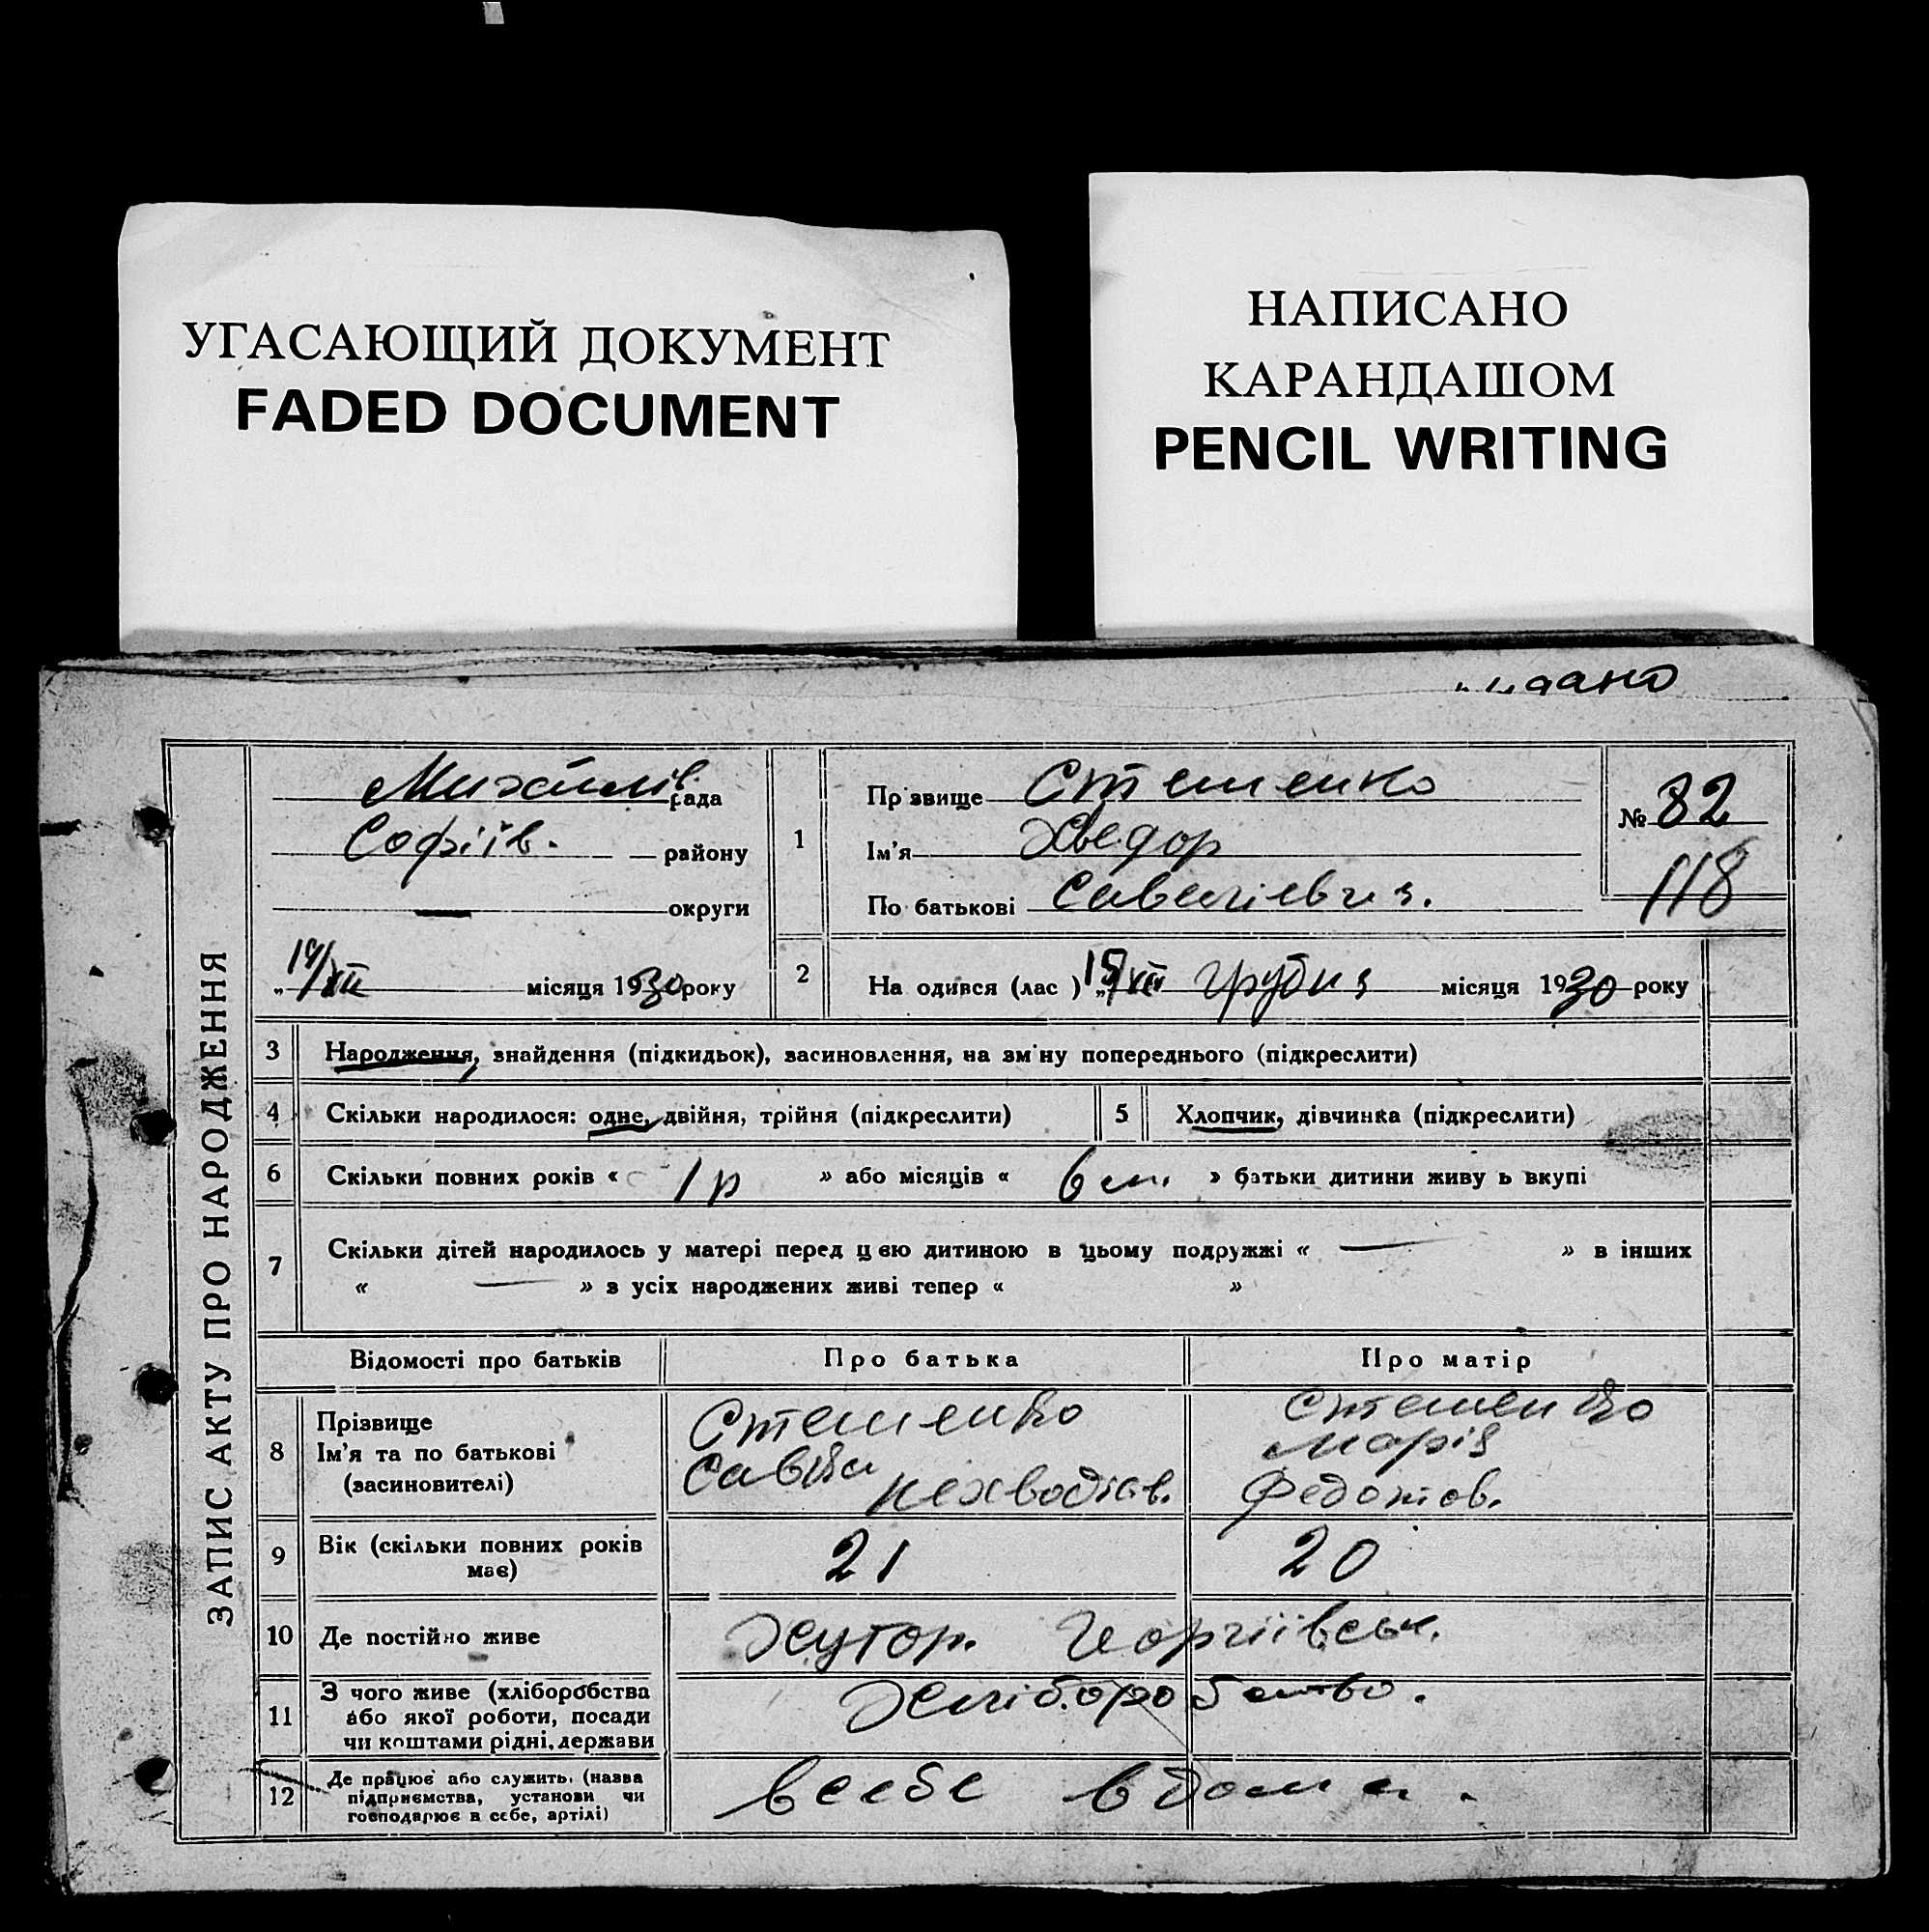 УГАСАЮЩИЙ ДОКУМЕНТ
FADED DOCUMENT
НАПИСАНО
КАРАНДАШОМ
PENCIL WRITING
ЗАПИС АКТУ ПРО НАРОДЖЕННЯ
Михайлів. рада
Софіїв. району
— округи
„14/XII місяця 1930 року
1
Прізвище Стеценко
Ім'я Хведор
По батькові
№ 82
118
2 На одився (лас ) „15/XII грудня місяця 1930 року
3 Народження, знайдення (підкидьок), засиновлення, на зміну попереднього (підкреслити)
4 Скільки народилося: одне, двійня, трійня (підкреслити) 5 Хлопчик, дівчинка (підкреслити)
6 Скільки повних років « 1 р » або місяців « 6 м. » батьки дитини живу ь вкупі
7 Скільки дітей народилось у матері перед цею дитиною в цьому подружжі « — » в інших
« — » з усіх народжених живі тепер « »
Відомості про батьків Про батька Про матір
8 Прізвище
Ім'я та по батькові
(засиновителі)
Стеценко
Савва
Стеценко
Марія
Федотов.
9 Вік (скільки повних років
має)
21 20
10 Де постійно живе Хутор. Георгіївськ.
11 З чого живе (хліборобства
або якої роботи, посади
чи коштами рідні, держави
Хліборобство.
12 Де працює або служить (назва
підприємства, установи чи
господарює в себе, артілі)
в себе вдома.